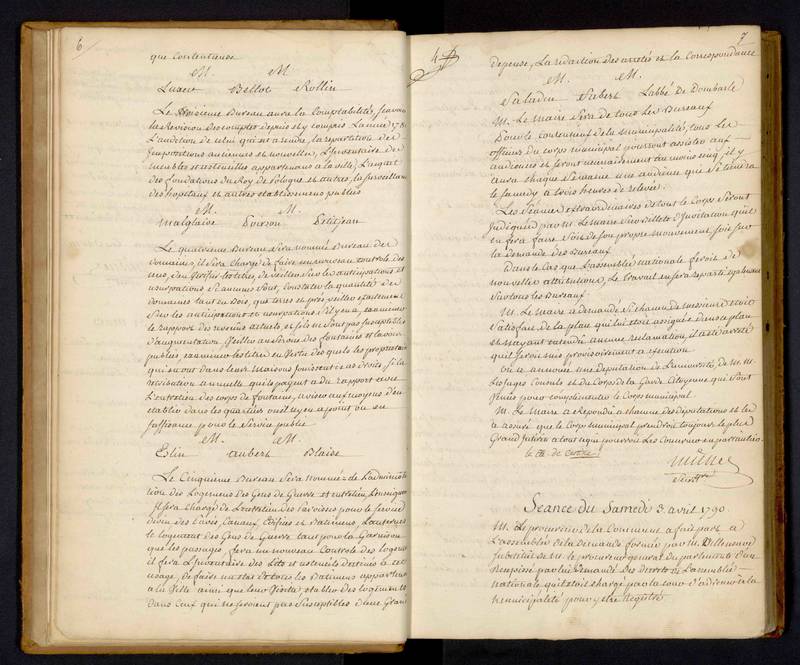 6
que Contentieuse
M. M.
Luxer Bellot Rollin
Le troisieme Bureau aura la Comptabilité, Scavoir
la Revision des comptes depuis et y compris L'année 178
L'audition de celui qui est a rendre, la repartition des
Impositions anciennes et nouvelles, L'Inventaire des
meubles et ustenciles appartenans a la ville, L'acquit
des fondations du Roy de Pologne et autres, la surveillan
des hopitaux et autres etablissemens publics
M. M.
Malglaive Poirson Petitjean
Le quatrieme Bureau Sera nommé Bureau des
domaines, il Sera Chargé de faire un nouveau controle des
de veiller Sur les anticipations et
usurpations des Communs, Constater la quantité des
domaines tant en Bois, que terres et prés, veiller exactement
Sur les anticipations et usurpations s'il y en a, examiner
le rapport des revenus actuels, et s'ils ne Sont pas Susceptibles
d'augmentation, Veiller au Service des fontaines et lavoirs
publics, examiner les titres en Vertu des quels les proprietaires
qui en ont dans leurs Maisons jouissent de ces droits, Si la
retribution annuelle qu'ils payent a du rapport avec
L'entretien des corps de fontaine, aviser aux moyens d'en
etablir dans les quartiers ou il n'y en a point, ou en
suffisance pour le Service public
M. M.
Eslin aubert Blaise
Le Cinquieme Bureau Sera nommé de L'administra
tion des Logemens des Gens de Guerre et entretien,
Il sera Chargé de L'entretien des Paroisses pour le Service
divin des Pavés, Canaux Edifices et Batimens, Lanternes
le logement des Gens de Guerre tant pour la Garnison
que les passages, fera un nouveau Controle des logemens
il fera L'Inventaire des Lits et ustencils destinés a cet
usage, de faire un etat de tous les Batimens appartenan
a la Ville ainsi que leur Visite, etablir des logements
dans Ceux qui ne Seroient pas Susceptibles d'une Grande
7
depense, La redaction des arretés et la Correspondance
M. M.
Saladin Aubert L'abbé De Dombasle
M. Le Maire Sera de tous les Bureaux
Pour le contentieux de la municipalité, tous les
officiers du corps municipal pourront assister aux
audiences et Seront necessairement au moins cinq, il y
aura chaque Semaine une audience qui Se tiendra
le lundy a trois heures de relevée.
Les Séances extraordinaires de tout le Corps Seront
Indiquées par M. Le Maire Sur Billets d'Invitation qu'il
en fera faire Soit de Son propre mouvement Soit sur
la demande des Bureaux.
Dans le Cas que L'assemblée nationale feroit de
nouvelles attributions, Le travail en sera reparti egalement
Sur tous les Bureaux.
M. Le Maire a demandé Si chacun des messieurs etoit
Satisfait de la place qui lui etoit assignée dans ce plan
et n'ayant entendu aucune reclamation, il a eté arreté
qu'il seroit mis provisoirement a execution.
On a annoncé une deputation de L'université, de M.M.
les Juges Consuls et du Corps de la Garde Citoyenne qui Sont
venus pour complimenter le Corps municipal.
M. Le Maire a repondu a chacune des deputations et les
a assuré que le Corps Municipal prendroit toujours le plus
Grand Interest a tout ce qui pourroit Les Concerner en particulier.
Secretre
Seance du Samedi 3. avril 1790.
M. Le procureur de la Commune a fait part a
L'assemblée de la demande formée par M. Villeneuve
Substitut de M. le procureur general du parlement d'un
Récépissé par lui demandé des decrets de L'assemblée
nationale qu'il etoit chargé par la cour d'adresser a la
Municipaleté pour y etre Registré